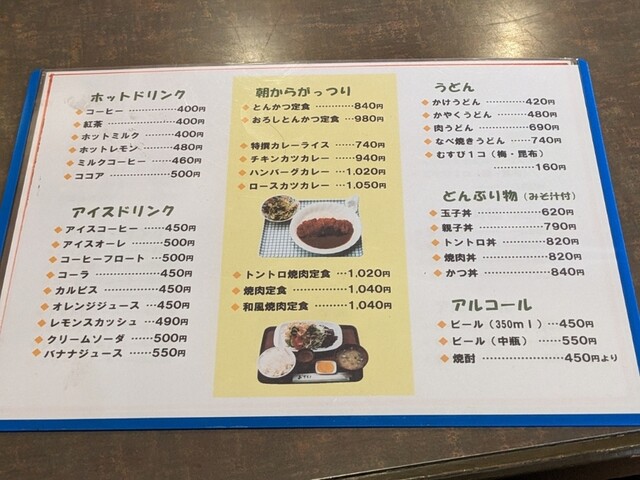 ホットドリンク
◆コーヒー …………400円
◆紅茶 ………………400円
◆ホットミルク ……400円
◆ホットレモン ……480円
◆ミルクコーヒー …460円
◆ココア ……………500円
アイスドリンク
◆アイスコーヒー …450円
◆アイスオーレ ……500円
◆コーヒーフロート …500円
◆コーラ ……………450円
◆カルピス …………450円
◆オレンジジュース …450円
◆レモンスカッシュ …490円
◆クリームソーダ …500円
◆バナナジュース …550円
朝からがっつり
◆とんかつ定食 …………840円
◆おろしとんかつ定食 …980円
◆特撰カレーライス ……740円
◆チキンカツカレー ……940円
◆ハンバーグカレー …1,020円
◆ロースカツカレー …1,050円
◆トントロ焼肉定食 …1,020円
◆焼肉定食 ……………1,040円
◆和風焼肉定食 ………1,040円
うどん
◆かけうどん …………420円
◆かやくうどん ………480円
◆肉うどん ……………690円
◆なべ焼きうどん ……740円
◆むすび1コ（梅・昆布）
…………160円
どんぶり物（みそ汁付）
◆玉子丼 ………………620円
◆親子丼 ………………790円
◆トントロ丼 …………820円
◆焼肉丼 ………………820円
◆かつ丼 ………………840円
アルコール
◆ビール（350ml）…450円
◆ビール（中瓶） ……550円
◆焼酎 …………………450円より